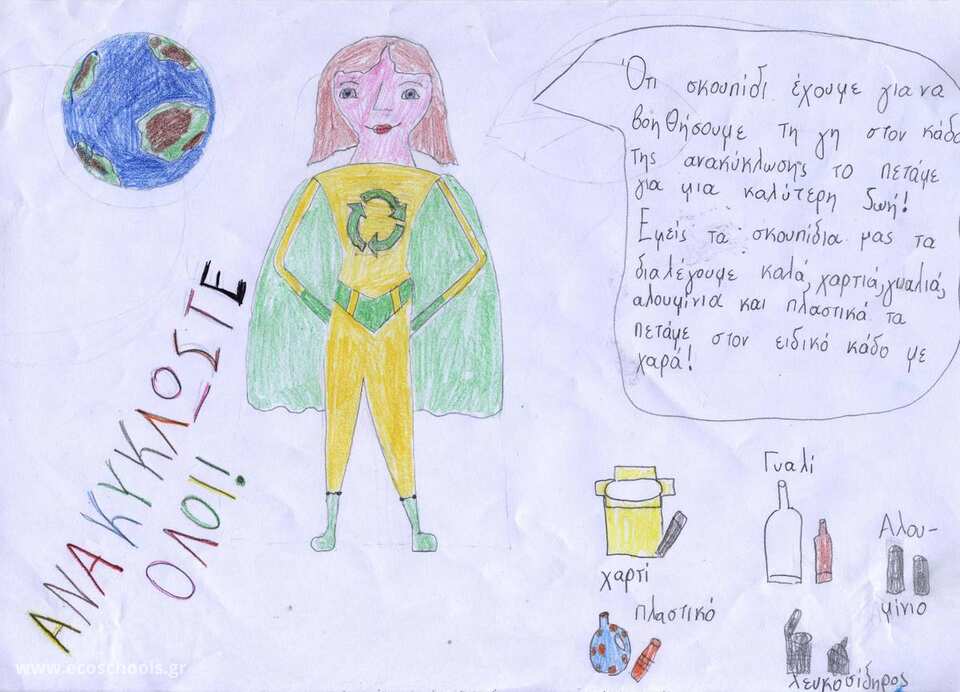 Ότι σκουπίδι έχουμε για να
βοηθήσουμε τη γη στον κάδο
της ανακύκλωσης το πετάμε
για μια καλύτερη ζωή!
Εμείς τα σκουπίδια μας τα
διαλέγουμε καλά, χαρτιά, γυαλιά,
αλουμίνια και πλαστικά τα
πετάμε στον ειδικό κάδο με
χαρά!
ΑΝΑΚΥΚΛΩΣΤΕ
ΟΛΟΙ!
Γυαλί
Αλου-
μίνιο
χαρτί
πλαστικό
λευκοσίδηρος
www.ecoschools.gr